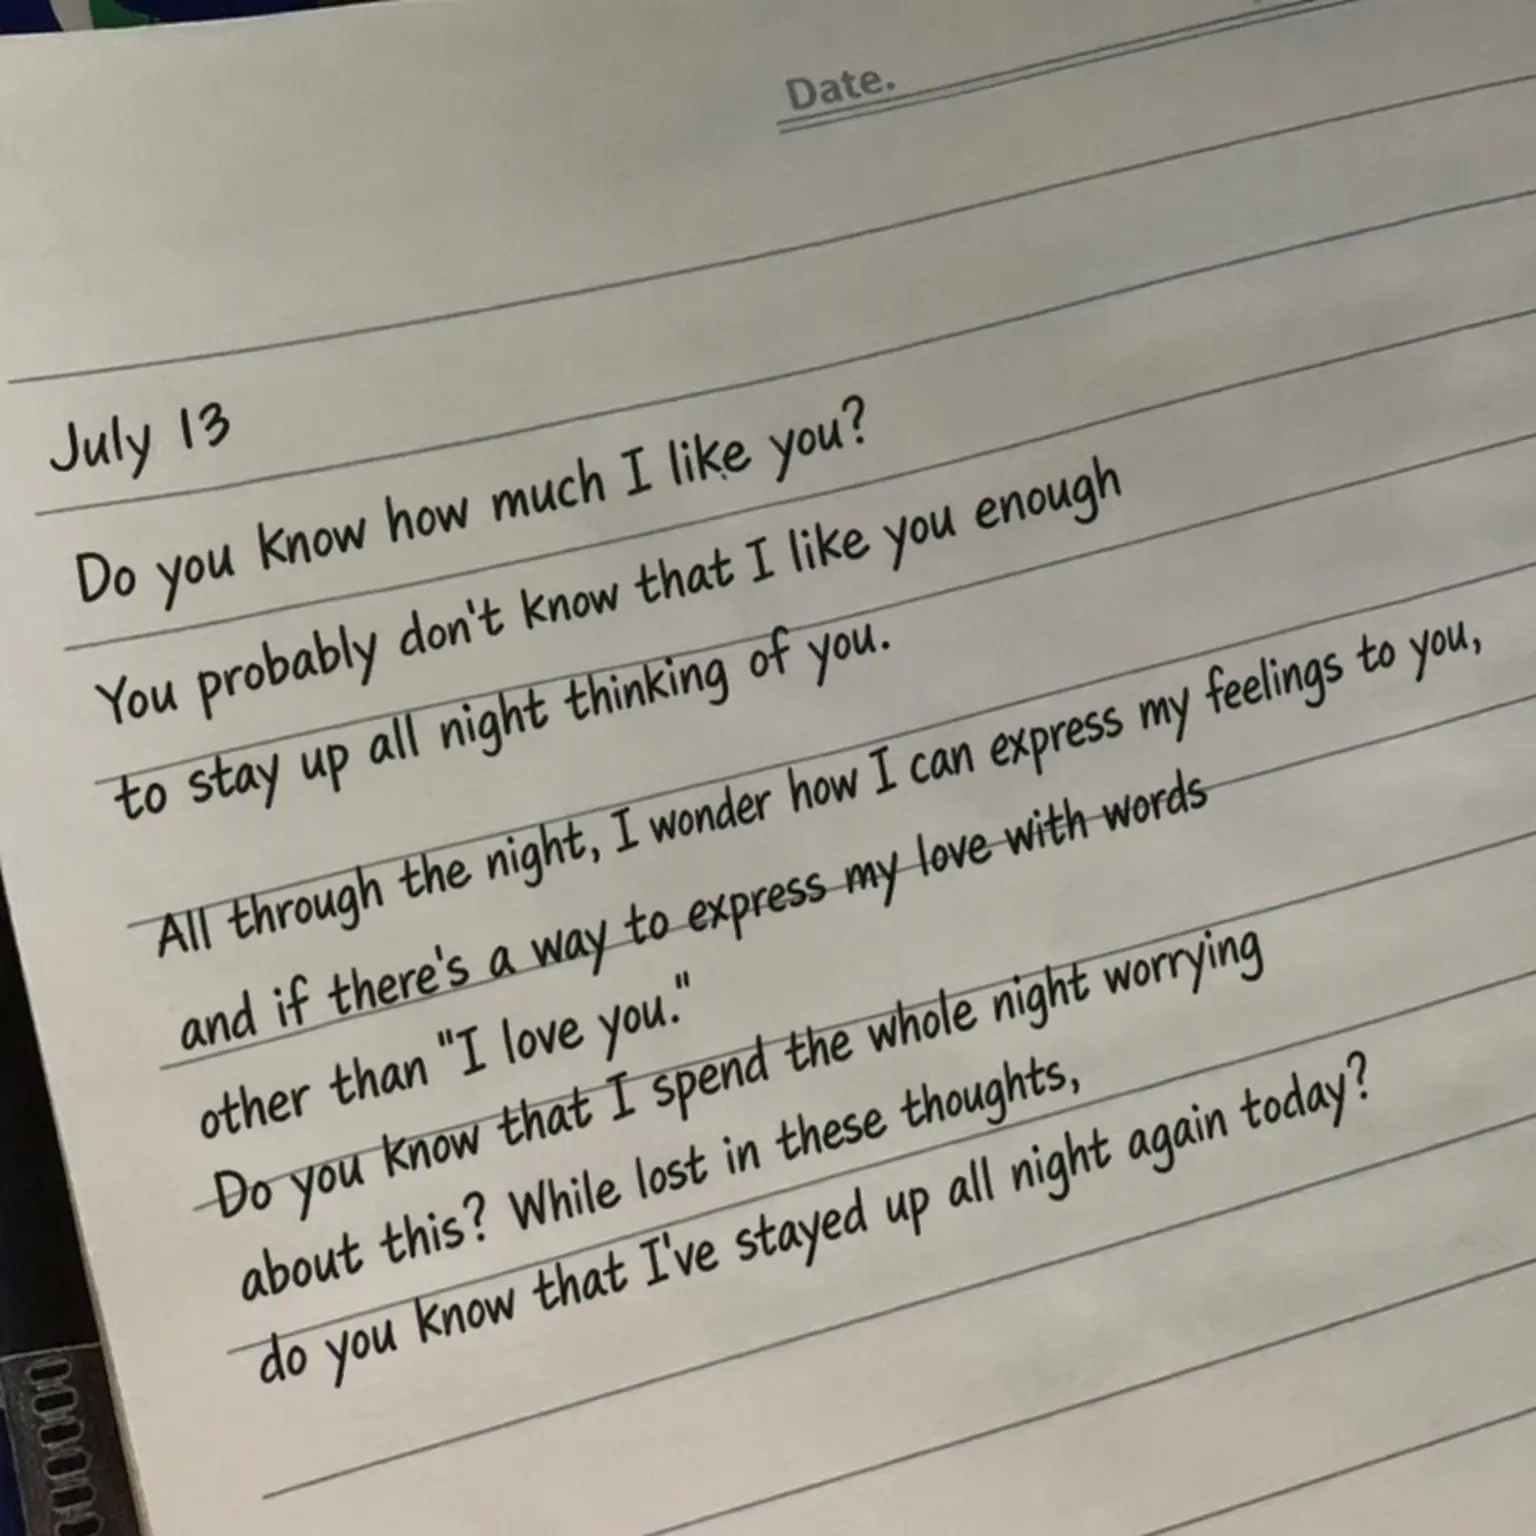 Date.
July 13
Do you know how much I like you?
You probably don't know that I like you enough
to stay up all night thinking of you.
All through the night, I wonder how I can express my feelings to you,
and if there's a way to express my love with words
other than "I love you."
Do you know that I spend the whole night worrying
about this? While lost in these thoughts,
do you know that I've stayed up all night again today?